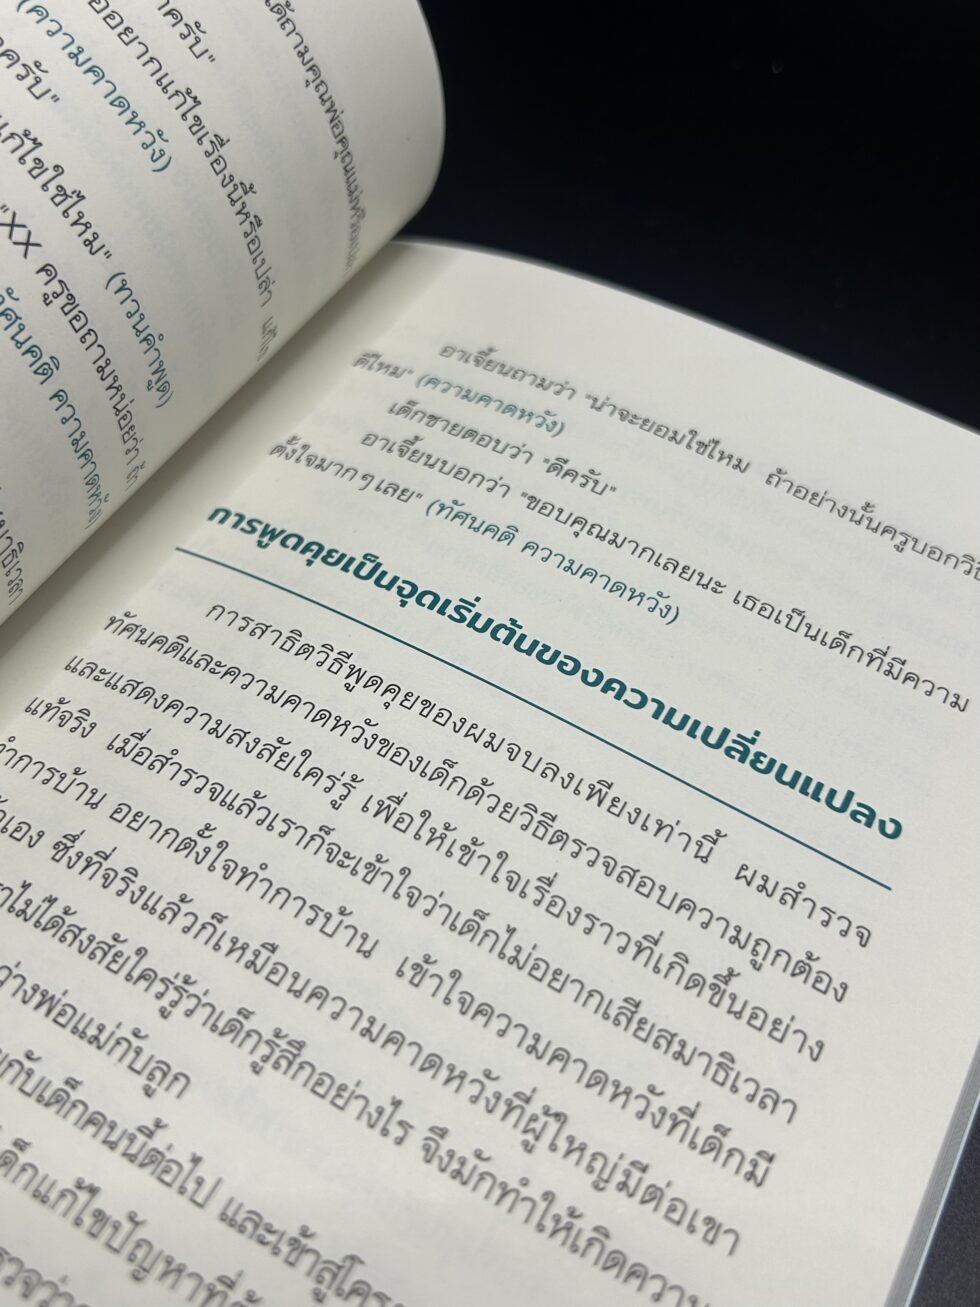 ได้ถามคุณพ่อคุณแม่หรือเปล่า
ครับ"
ออยากแก้ไขเรื่องนี้หรือเปล่า
(ความคาดหวัง)
ครับ"
แก้ไขใช่ไหม" (ทวนคำพูด)
"XX ครูขอถามหน่อยว่า ถ้า
ทัศนคติ ความคาดหวัง)
อาเจี้ยนถามว่า "น่าจะยอมใช่ไหม ถ้าอย่างนั้นครูบอกวิธี
ดีไหม" (ความคาดหวัง)
เด็กชายตอบว่า "ดีครับ"
อาเจี้ยนบอกว่า "ขอบคุณมากเลยนะ เธอเป็นเด็กที่มีความ
ตั้งใจมากๆ เลย" (ทัศนคติ ความคาดหวัง)
การพูดคุยเป็นจุดเริ่มต้นของความเปลี่ยนแปลง
การสาธิตวิธีพูดคุยของผมจบลงเพียงเท่านี้ ผมสำรวจ
ทัศนคติและความคาดหวังของเด็กด้วยวิธีตรวจสอบความถูกต้อง
และแสดงความสงสัยใคร่รู้ เพื่อให้เข้าใจเรื่องราวที่เกิดขึ้นอย่าง
แท้จริง เมื่อสำรวจแล้วเราก็จะเข้าใจว่าเด็กไม่อยากเสียสมาธิเวลา
ทำการบ้าน อยากตั้งใจทำการบ้าน เข้าใจความคาดหวังที่เด็กมี
เอง ซึ่งที่จริงแล้วก็เหมือนความคาดหวังที่ผู้ใหญ่มีต่อเขา
ไม่ได้สงสัยใคร่รู้ว่าเด็กรู้สึกอย่างไร จึงมักทำให้เกิดความ
ว่างพ่อแม่กับลูก
กับเด็กคนนี้ต่อไป และเข้าสู่
เด็กแก้ไขปัญหาที่